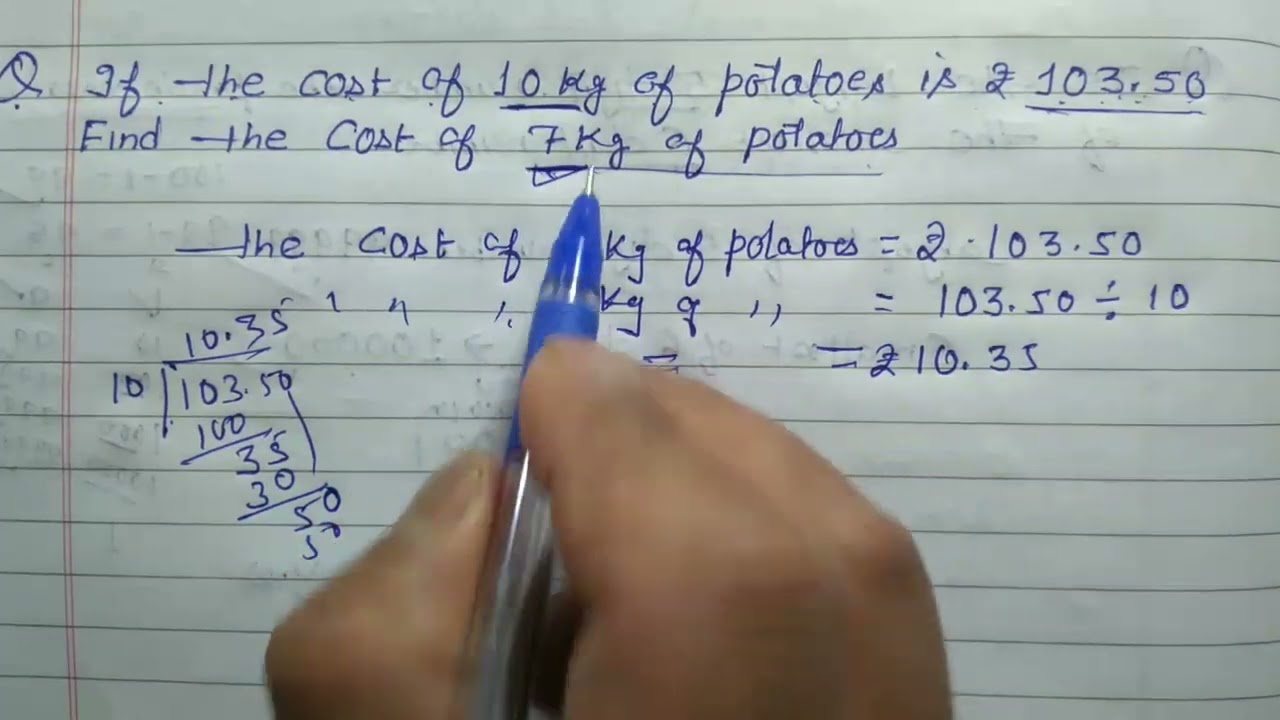 Q If the cost of 10 Kg of potatoes is ₹ 103.50
Find the Cost of 7Kg of potatoes
The Cost of Kg of potatoes = ₹ 103.50
" " Kg of " = 103.50 ÷ 10
= = ₹ 10.35
10.35
10 103.50
100
35
30
50
50